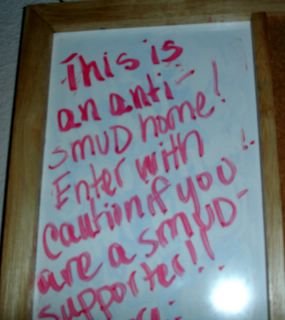 This is
an anti-
smuD home!
Enter with
caution if you !
are a smuD-
supporter!!